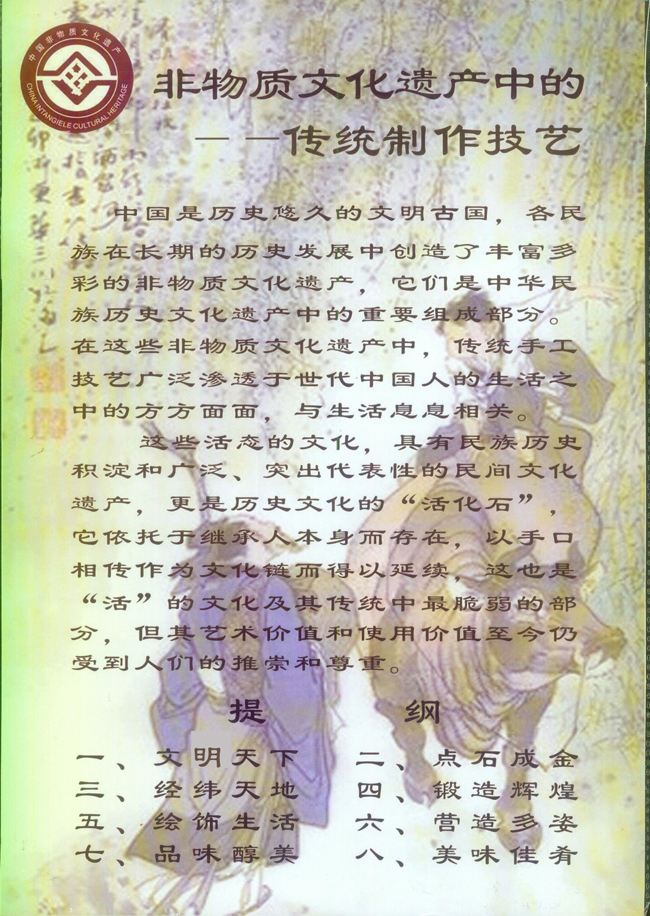 中国非物质文化遗产
CHINA INTANGIELE CULTURAL HERITAGE
非物质文化遗产中的
——传统制作技艺
中国是历史悠久的文明古国，各民
族在长期的历史发展中创造了丰富多
彩的非物质文化遗产，它们是中华民
族历史文化遗产中的重要组成部分。
在这些非物质文化遗产中，传统手工
技艺广泛渗透于世代中国人的生活之
中的方方面面，与生活息息相关。
这些活态的文化，具有民族历史
积淀和广泛、突出代表性的民间文化
遗产，更是历史文化的“活化石”，
它依托于继承人本身而存在，以手口
相传作为文化链而得以延续，这也是
“活”的文化及其传统中最脆弱的部
分，但其艺术价值和使用价值至今仍
受到人们的推崇和尊重。
提 纲
一、文明天下 二、点石成金
三、经纬天地 四、锻造辉煌
五、绘饰生活 六、营造多姿
七、品味醇美 八、美味佳肴